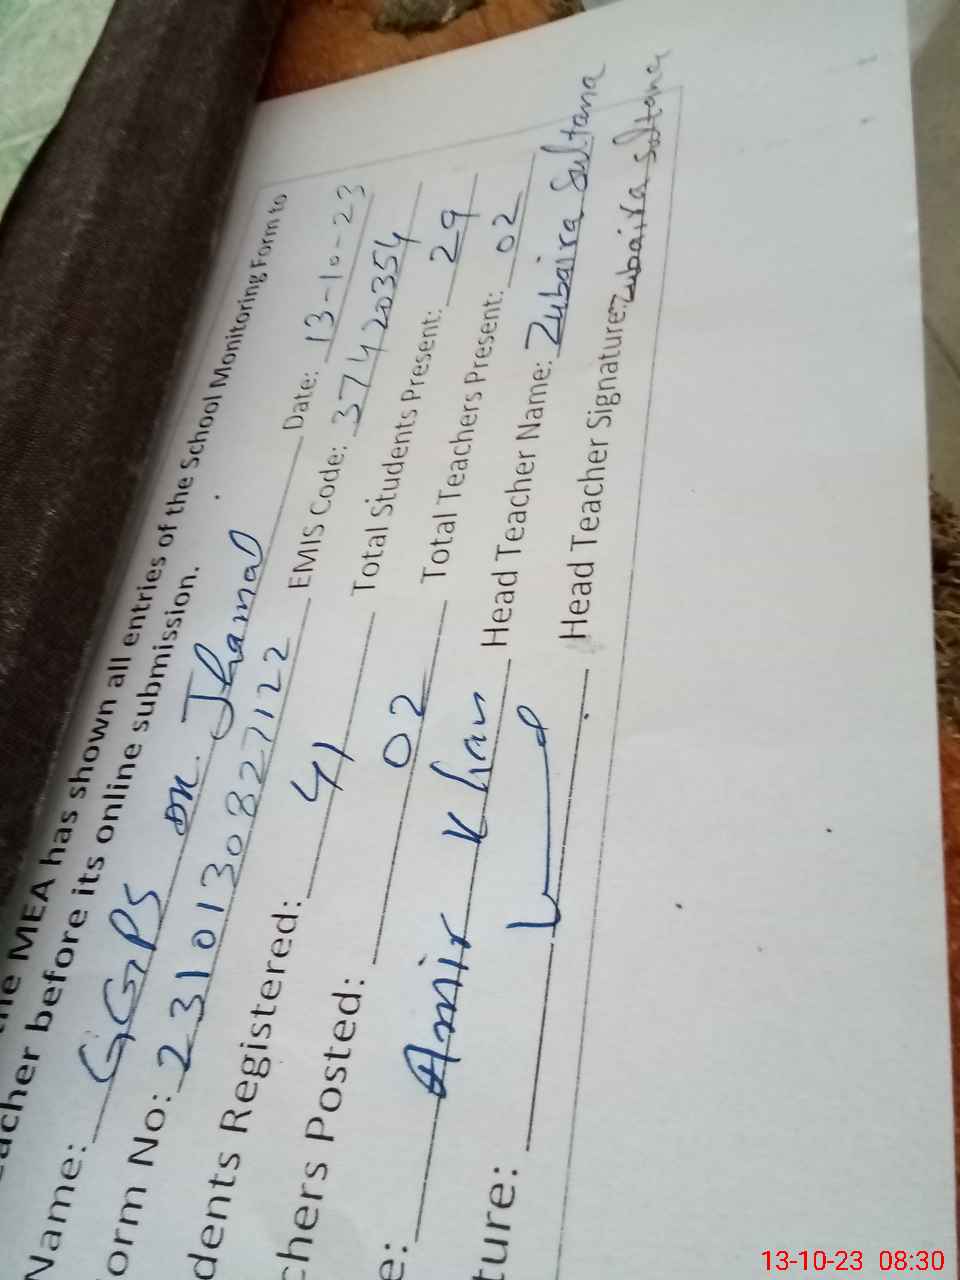 the MEA has shown all entries of the School Monitoring Form to
eacher before its online submission.
Name: GGPS Dk. Jhamal Date: 13-10-23
orm No: 2310130827122 EMIS Code: 37420354
dents Registered: 41 Total Students Present: 29
chers Posted: 02 Total Teachers Present: 02
e: Amir Khan Head Teacher Name: Zubaira Sultana
ture: Head Teacher Signature: Zubaira Sultana
13-10-23 08:30